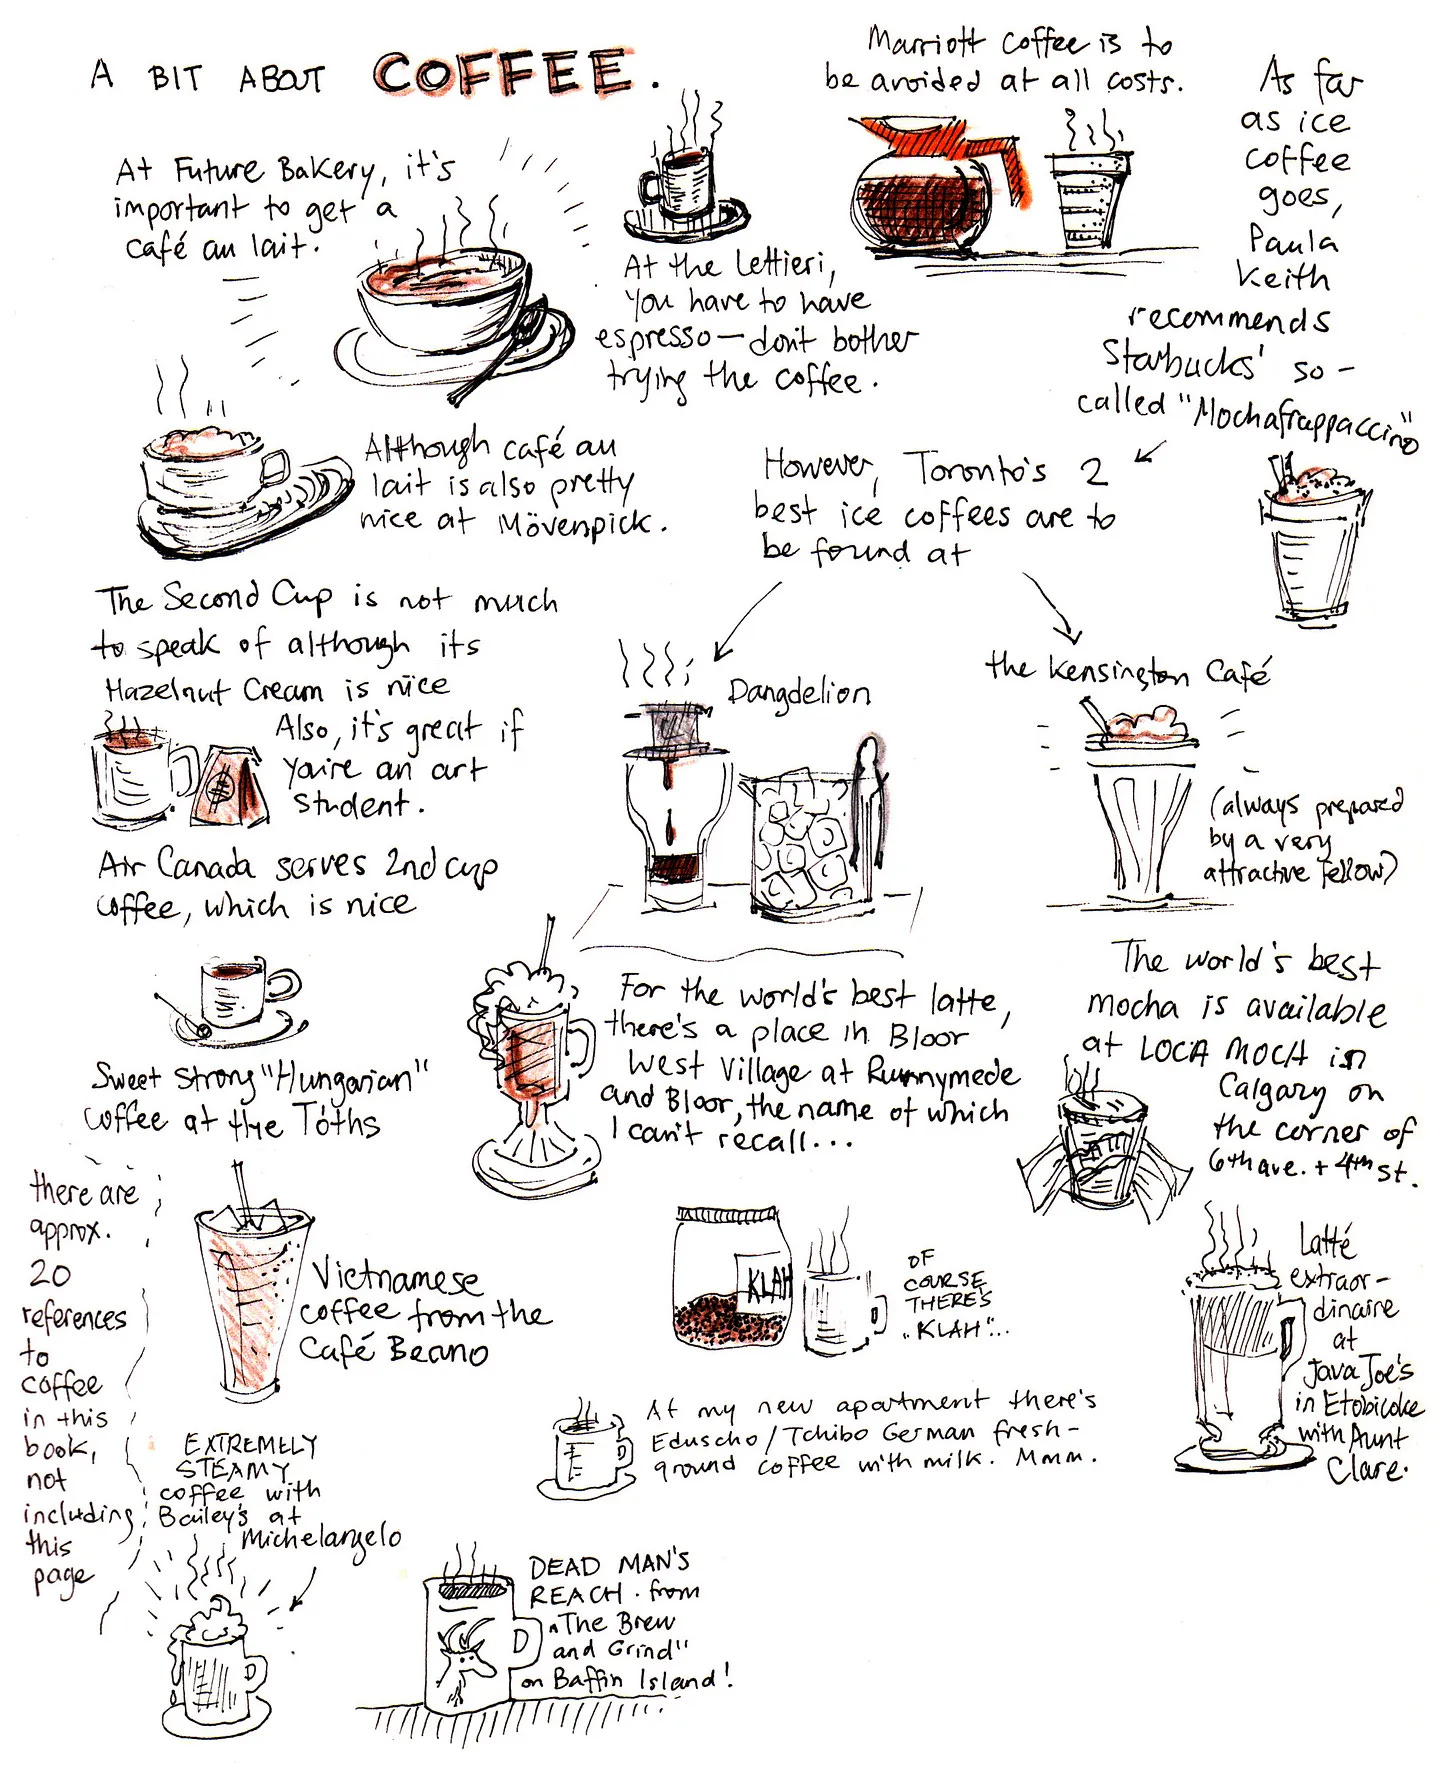 A BIT ABOUT COFFEE.
At Future Bakery, it's
important to get a
café au lait.
At the Lettieri,
you have to have
espresso—don't bother
trying the coffee.
Marriott coffee is to
be avoided at all costs.
As far
as ice
coffee
goes,
Paula
Keith
recommends
Starbucks' so-
called "Mochafrappaccino"
Although café au
lait is also pretty
nice at Mövenpick.
However, Toronto's 2
best ice coffees are to
be found at
Dangdelion
the Kensington Café
(always prepared
by a very
attractive fellow)
The Second Cup is not much
to speak of although its
Hazelnut Cream is nice
Also, it's great if
you're an art
student.
Air Canada serves 2nd cup
coffee, which is nice
Sweet strong "Hungarian"
coffee at the Tóths
For the world's best latte,
there's a place in Bloor
West Village at Runnymede
and Bloor, the name of which
I can't recall...
The world's best
mocha is available
at LOCA MOCA in
Calgary on
the corner of
6th ave. + 4th st.
there are
approx.
20
references
to
coffee
in this
book,
not
including
this
page
Vietnamese
coffee from the
Café Beano
KLAH
OF
COURSE
THERE'S
„KLAH"...
Latté
extraor-
dinaire
at
Java Joe's
in Etobicoke
with Aunt
Clare.
At my new apartment there's
Eduscho/Tchibo German fresh-
ground coffee with milk. Mmm.
EXTREMELY
STEAMY
coffee with
Bailey's at
Michelangelo
DEAD MAN'S
REACH. from
"The Brew
and Grind"
on Baffin Island!